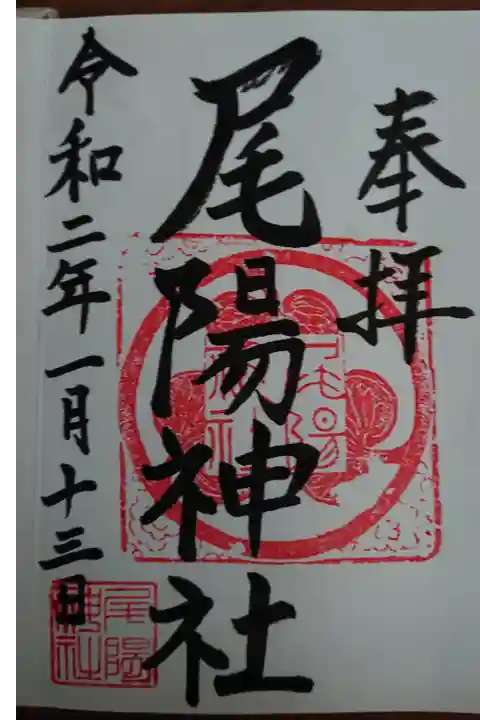 奉拝
尾陽神社
令和二年一月十三日
尾陽
神社
尾陽
神社